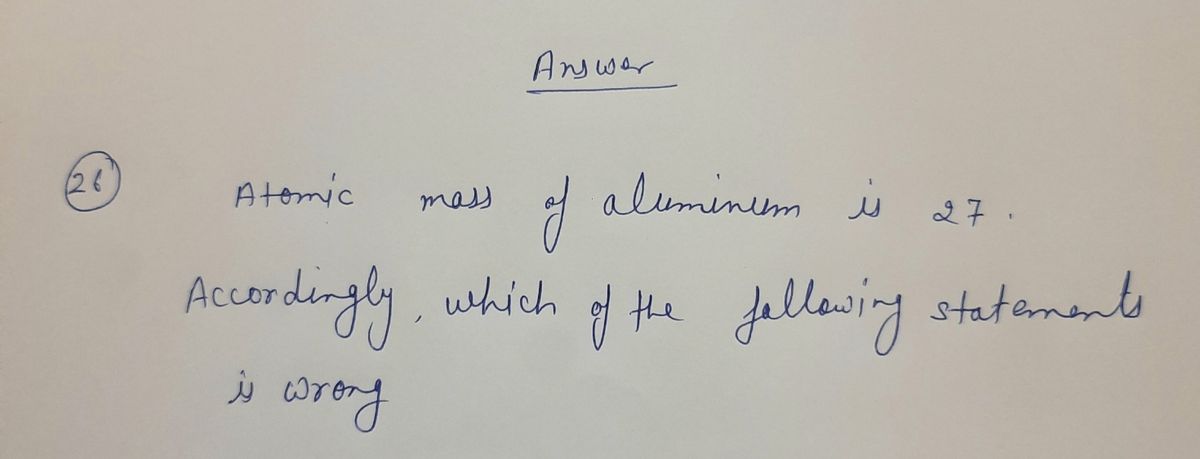 Answer
26 Atomic mass of aluminum is 27.
Accordingly, which of the following statements
is wrong